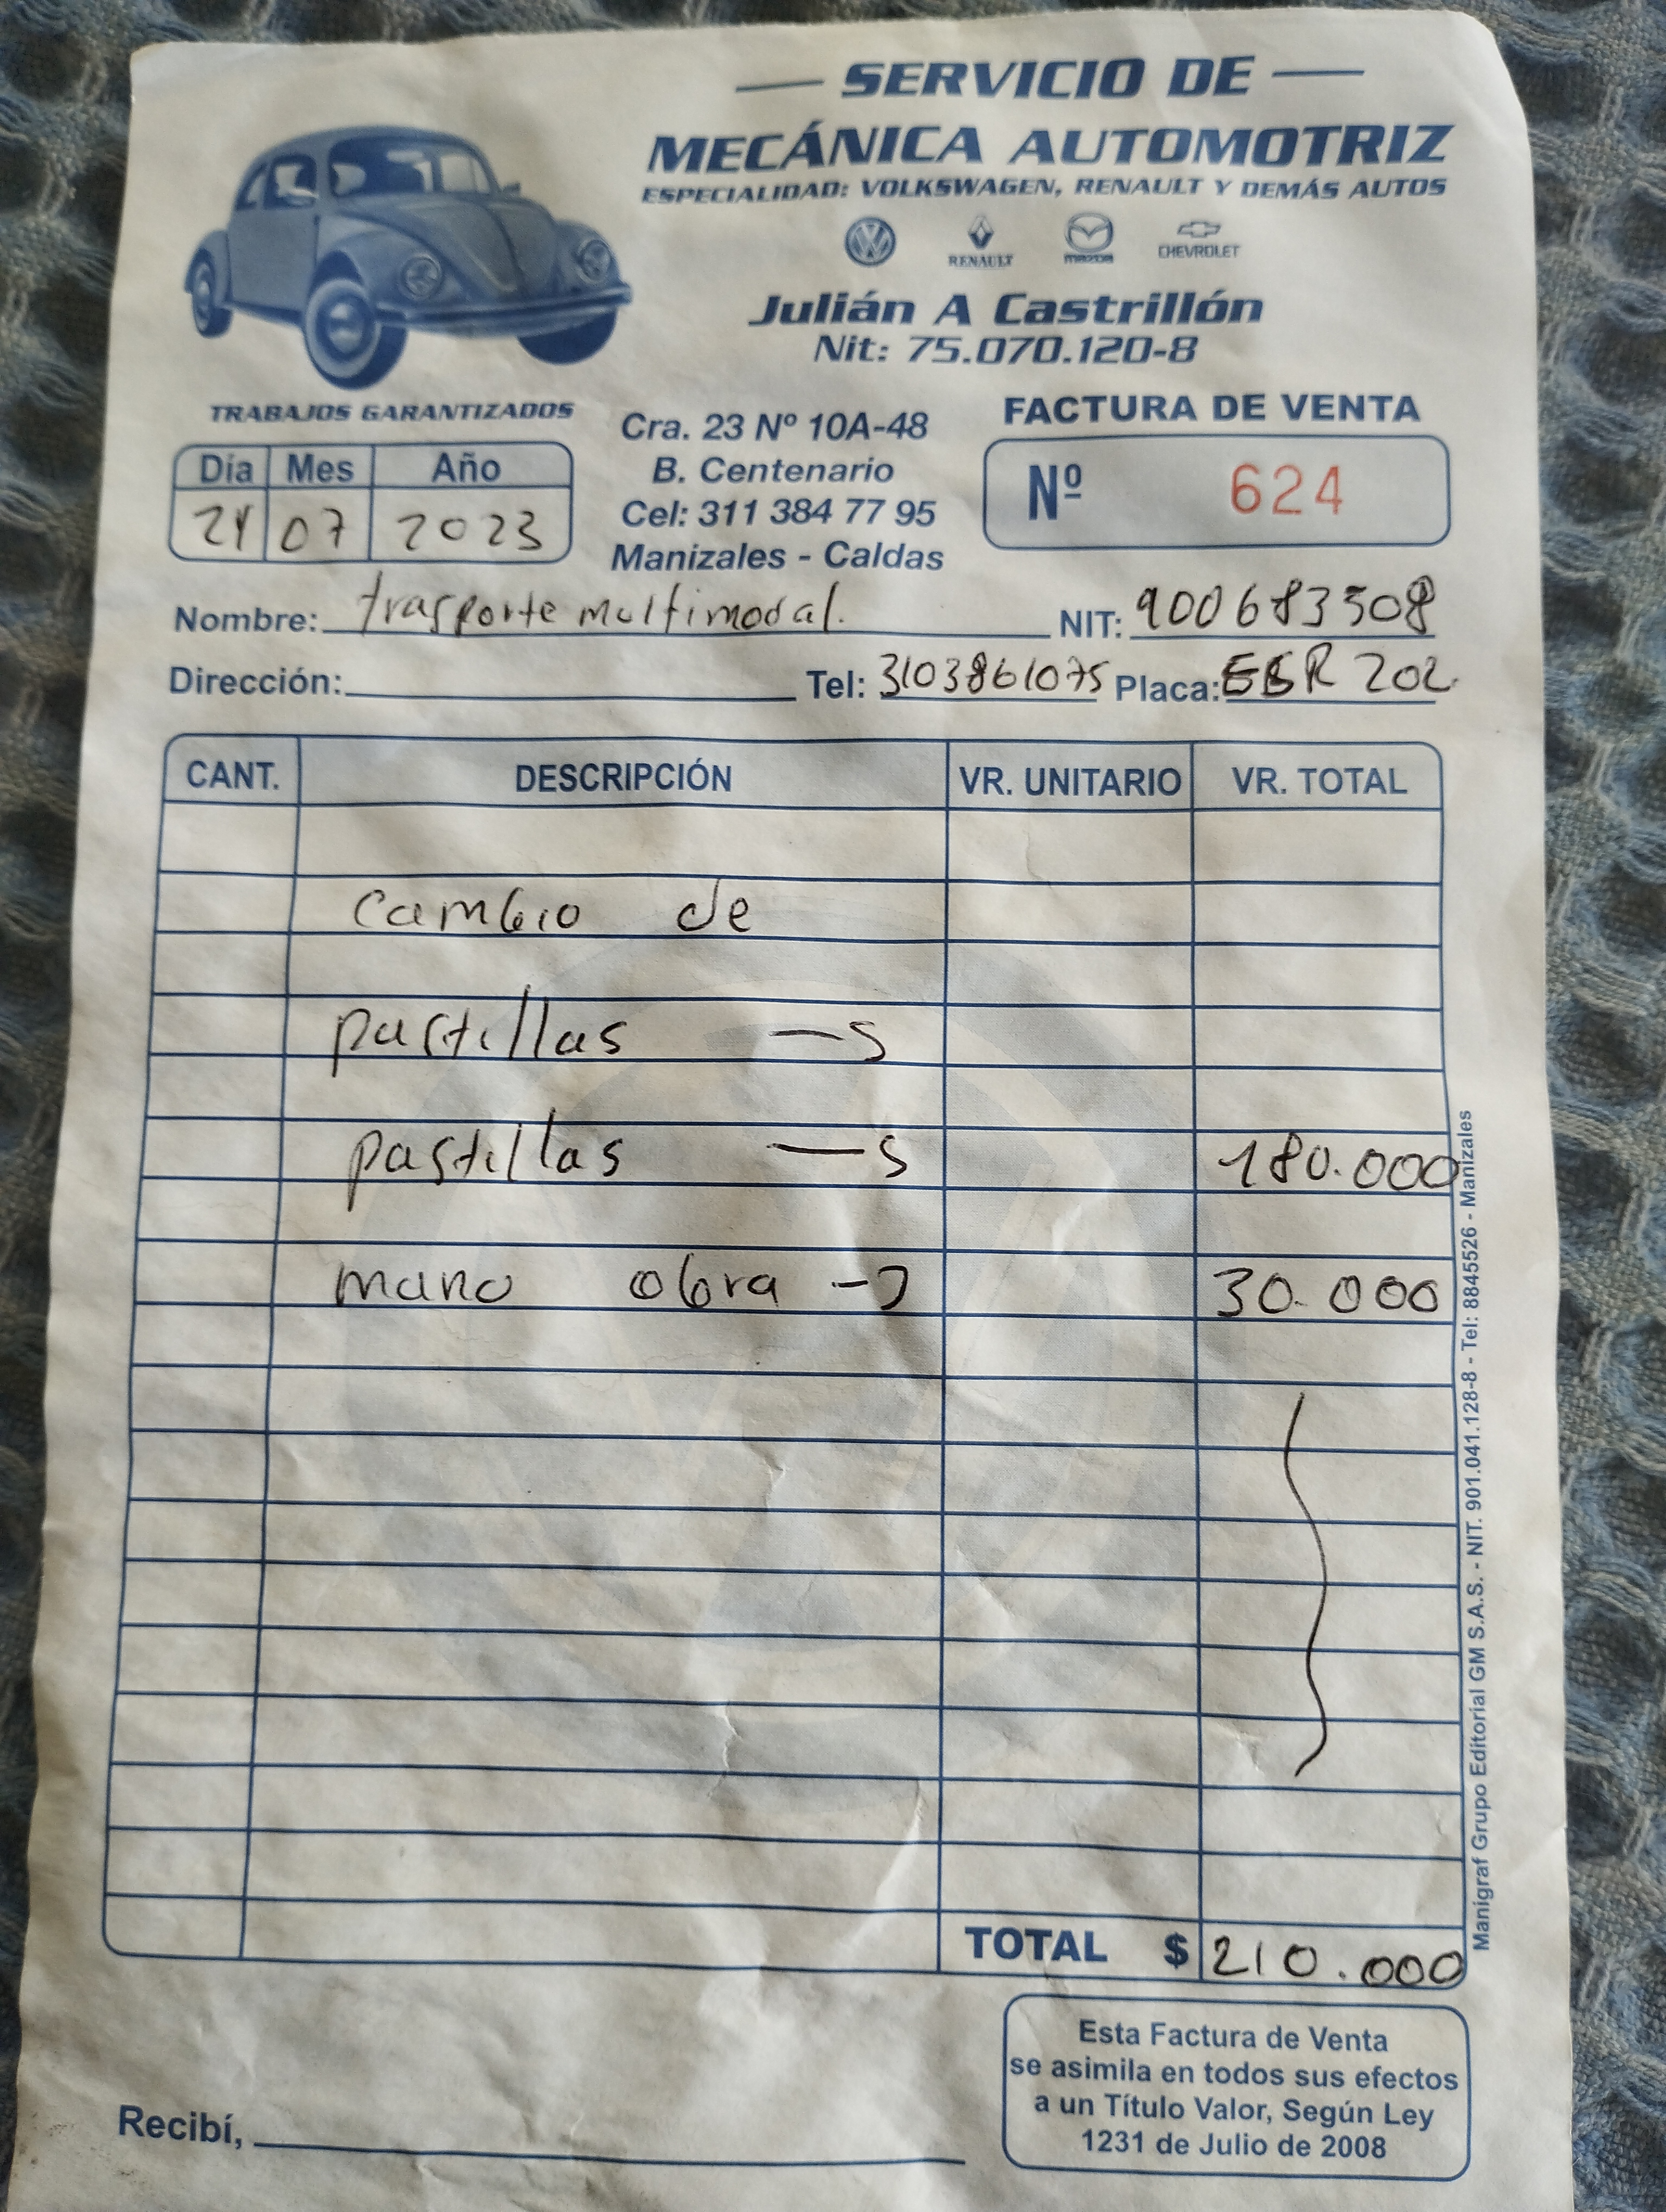 SERVICIO DE
MECÁNICA AUTOMOTRIZ
ESPECIALIDAD: VOLKSWAGEN, RENAULT Y DEMÁS AUTOS
RENAULT mazda CHEVROLET
Julián A Castrillón
Nit: 75.070.120-8
TRABAJOS GARANTIZADOS
Cra. 23 Nº 10A-48
B. Centenario
Cel: 311 384 77 95
Manizales - Caldas
FACTURA DE VENTA
Nº 624
Día Mes Año
07 2023
Nombre: trasporte multimodal. NIT: 900683508
Dirección: Tel: 3103861075 Placa: 202
CANT. DESCRIPCIÓN VR. UNITARIO VR. TOTAL
cambio de
pastillas
pastillas 180.000
mano obra 30.000
TOTAL $ 210.000
Esta Factura de Venta
se asimila en todos sus efectos
a un Título Valor, Según Ley
1231 de Julio de 2008
Recibí,
Manigraf Grupo Editorial GM S.A.S. - NIT. 901.041.128-8 - Tel: 8845526 - Manizales